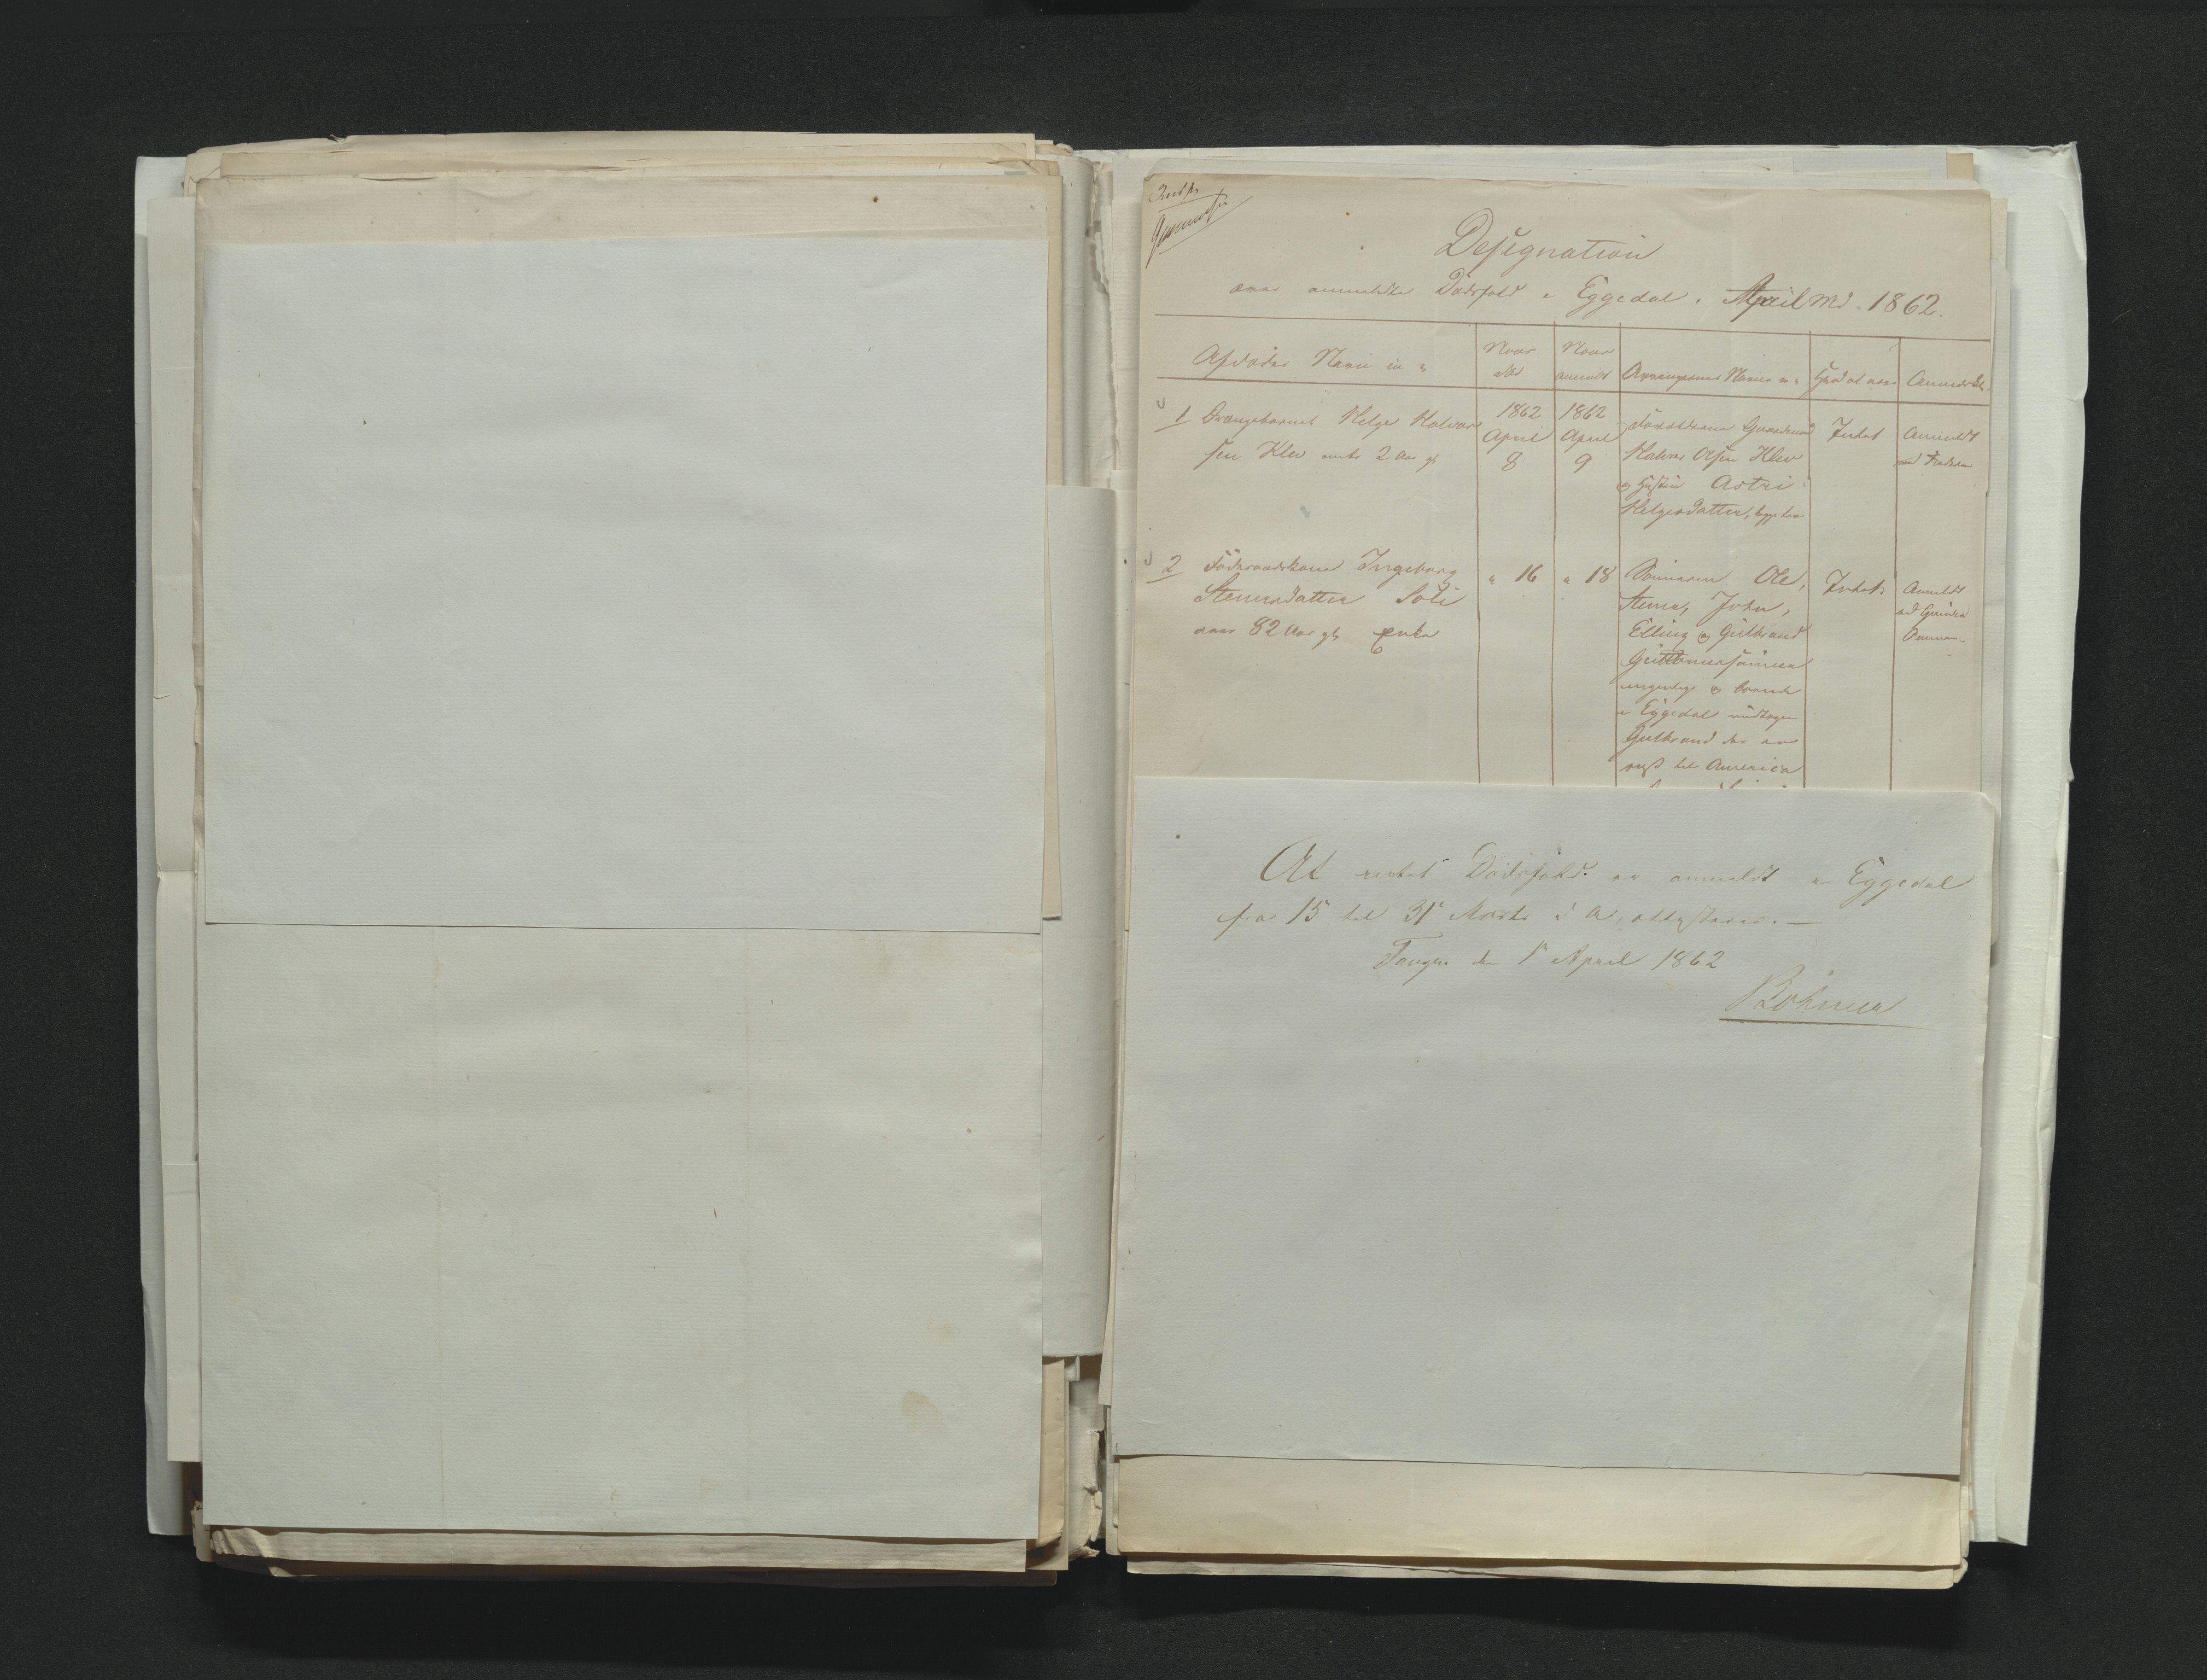 Designation
over anmeldte Dødsfald i Eggedal i April Md. 1862.
Afdødes Navn m. v.
Naar død
Naar anmeldt
Arvingernes Navne m. v.
Hvad at arve
Anmærkn.
1 Drengebarnet Helge Halvor
sen Klev omtr 2 Aar gl
1862
April
8
1862
April
9
Forældrene Gaardmd
Halvor Olsen Klev
og Hustru Astri
Helgesdatter, begge lev
Intet
Anmeldt
ved Faderen
2 Føderaadskone Ingeborg
Steensdatter Søli
82 Aar gl Enke
" 16
" 18
Sønnerne Ole,
Steen, John,
Elling og Gulbrand
myndige og boende
i Eggedal undtagen
Gulbrand der er
rejst til America
Intet
Anmeldt
ved
At intet Dødsfald er anmeldt i Eggedal
fra 15 til 31 Marts d. A. attesteres.—
Fougn den 1 April 1862
Bøhmer